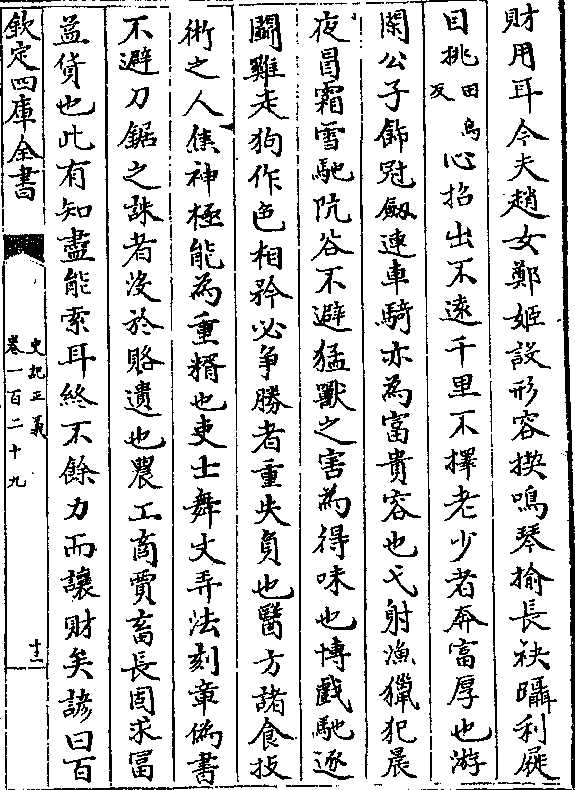 財用耳今夫趙女鄭姬設形容揳鳴琴揄長袂躡利屣
目挑田鳥反心招出不逺千里不擇老少者奔富厚也游
閑公子飾冠劔連車騎亦為富貴容也弋射漁獵犯晨
夜冒霜雪馳阬谷不避猛獸之害為得味也博戲馳逐
鬭雞走狗作色相矜必爭勝者重失負也醫方諸食技
術之人焦神極能為重糈也吏士舞文弄法刻章偽書
不避刀鋸之誅者沒於賂遺也農工商賈畜長固求富
益貨也此有知盡能索耳終不餘力而讓財矣諺曰百
欽定四庫全書
史記正義
卷一百二十九
十二